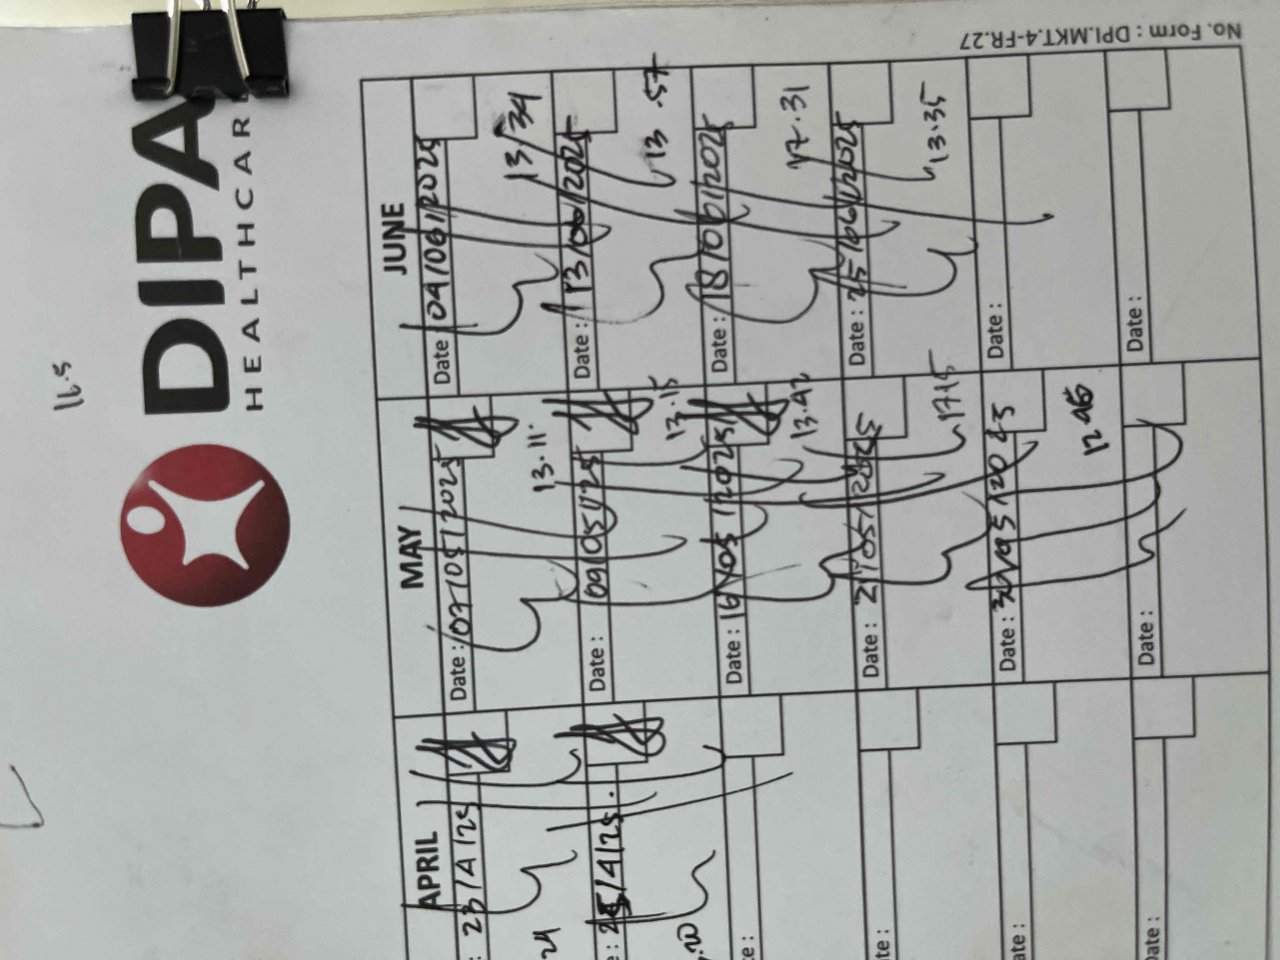 No. Form : DPI.MKT.4-FR.27
DIPA
HEALTHCAR
16.5
APRIL
: 23/4/25
24
: 25/4/25.
.20
te :
te :
te :
Date :
MAY
Date : 07/05/2025
13.11
Date : 09/05/25
13.15
Date : 16/05/2025
13.42
Date : 21/05/2025
17.15
Date : 30/05/2025
Date :
JUNE
Date : 04/06/2025
13/34
Date : 13/06/2025
13.57
Date : 18/06/2025
17.31
Date : 25/06/2025
13.35
Date :
Date :